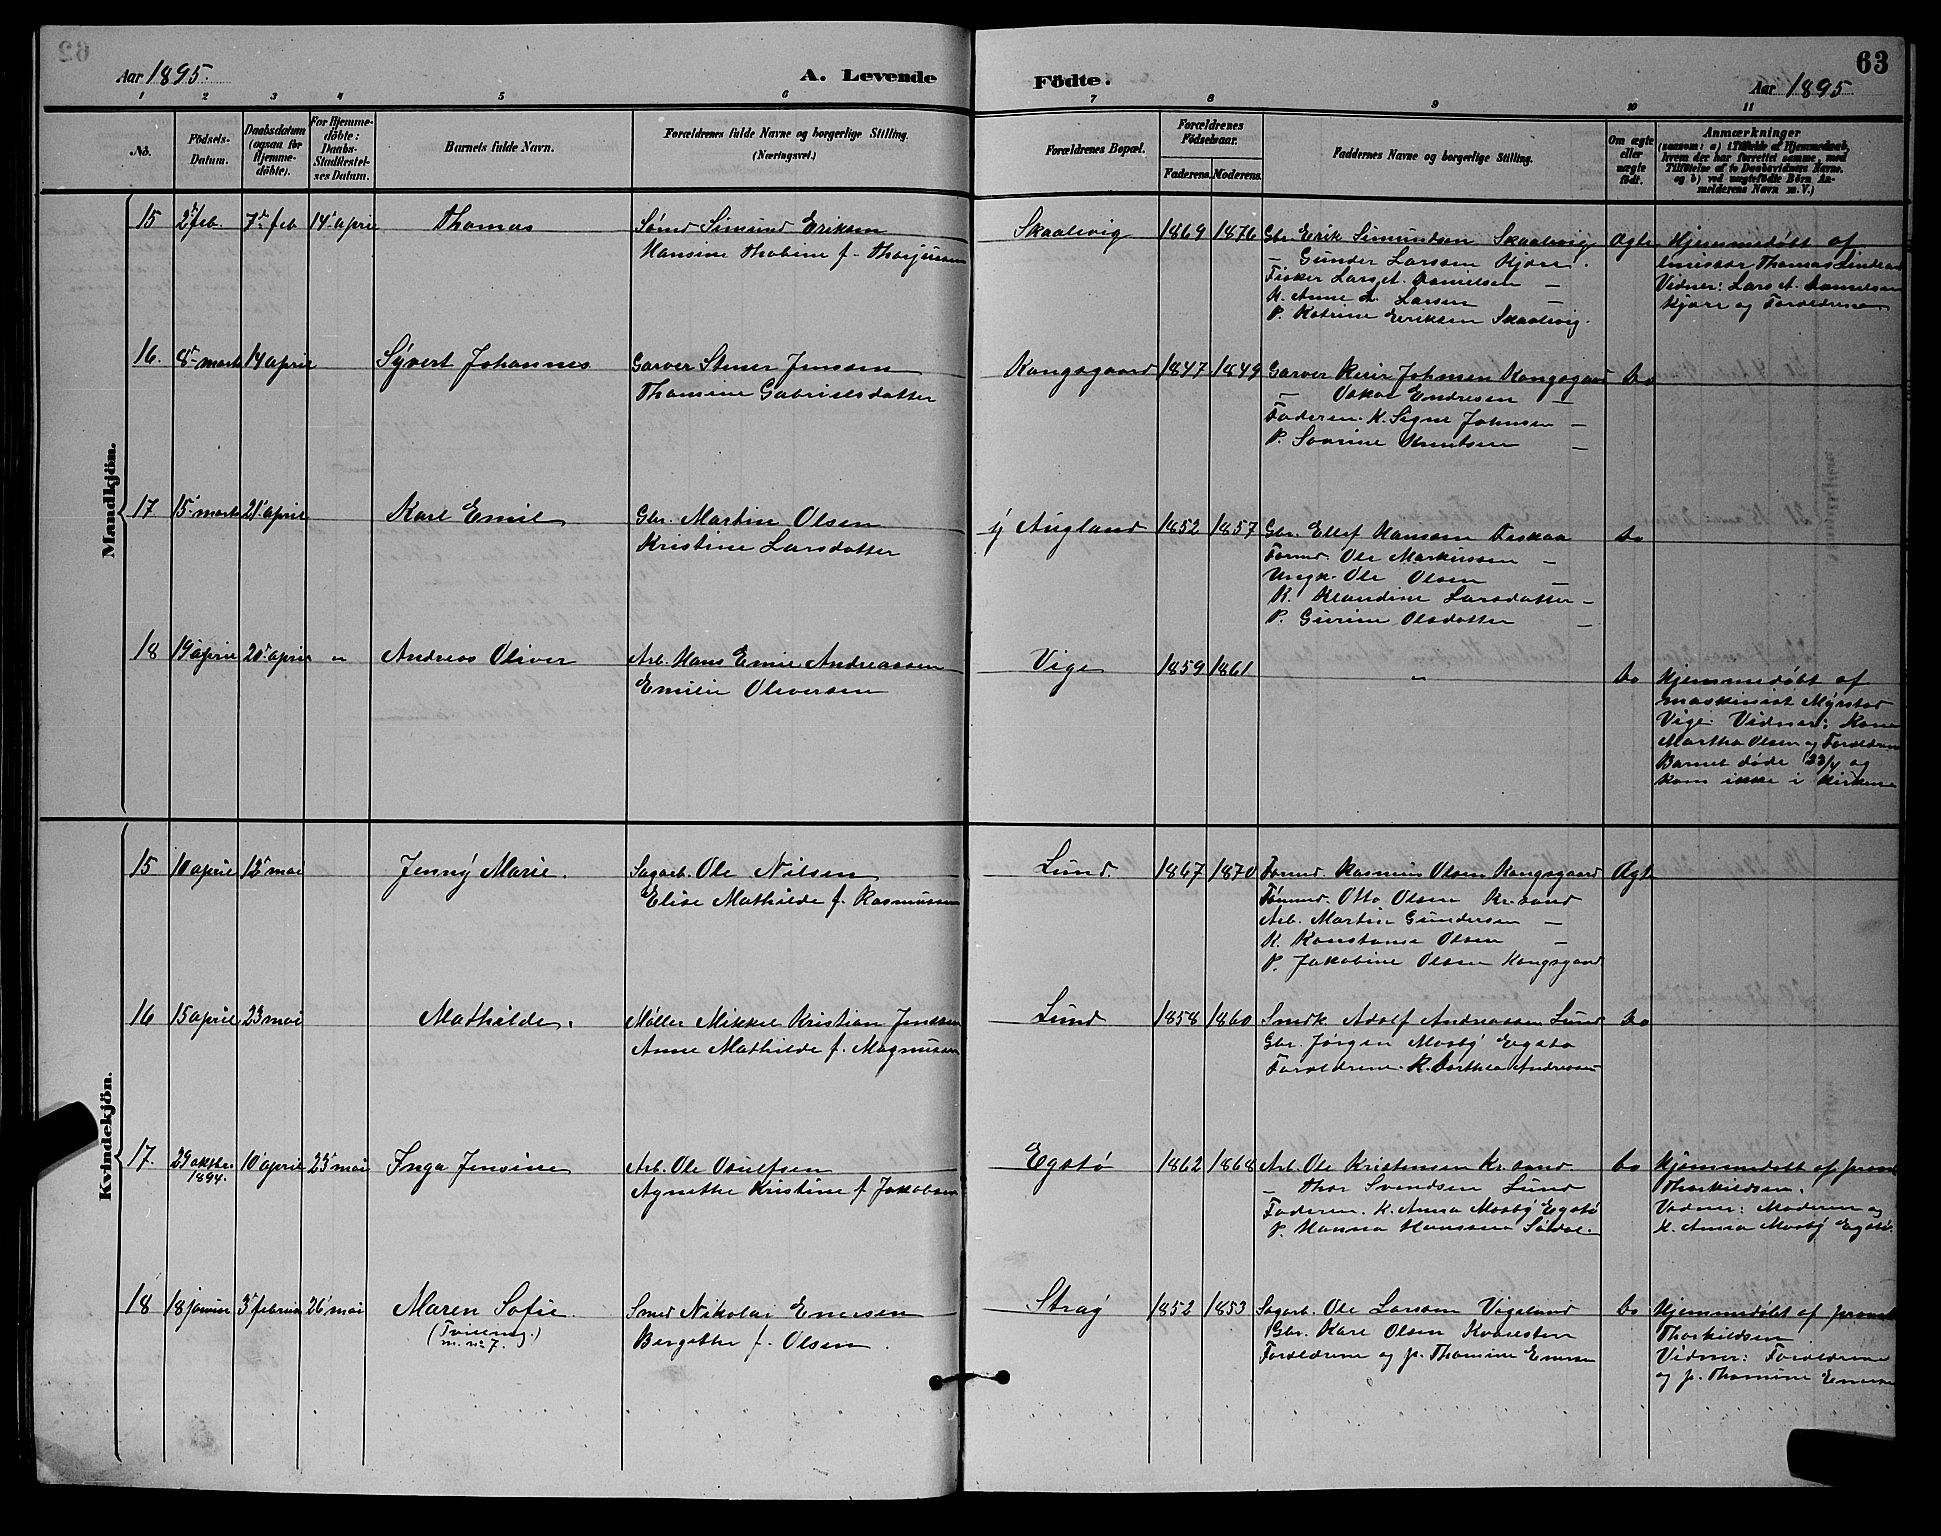 63
Aar 1895.
A. Levende
Födte.
Aar 1895
1 2 3 4 5 6 7 8 9 10 11
No.
Födsels-Datum.
Daabsdatum (ogsaa for Hjemme-döbte).
For Hjemme-döbte: Daabs-Stadfæstel-ses Datum.
Barnets fulde Navn.
Forældrenes fulde Navne og borgerlige Stilling.
(Næringsvei.)
Forældrenes Bopæl.
Forældrenes Födselsaar.
Faderens. Moderens.
Faddernes Navne og borgerlige Stilling.
Om ægte eller uægte födt.
Anmærkninger
(saasom: a) i Tilfælde af Hjemmedaab, hvem der har forrettet samme, med Tilföielse af to Daabsvidners Navne. og b) ved uægtefödte Börn An-melderens Navn m. V.)
Mandkjön.
15 2' feb. 7' feb 14' april Thomas
Sømd Simund Eriksen
Hansine Thobine f. Thorjussen
Skaalevig 1869 1876
Gbr. Erik Simundsen Skaalevig
— Gunder Larssen Kjære.
Fisker Lars A. Danielsen —
K. Anne L. Larsen —
P. Katrine Eriksen Skaalevig.
Ægte
Hjemmedøbt af
Thomas
Vidner: Lars A. Danielsen
Kjære og Forældrene
16. 8' marts 14 april Syvert Johannes
Garver Stener Jenssen
Thomine Gabrielsdatter
Kongsgaard 1847 1849
Garver Johnsen Kongsgaard
— Oskar Endresen —
Faderen. K. Signe Johnsen —
P. Severine Knutsen —
do
17 15' marts 21' april Karl Emil
Gbr. Martin Olsen
Kristine Larsdatter
y Augland 1852 1857
Gbr. Ellef Hansen
Tømd. Ole Markussen —
Ungk. Ole Olsen —
K. Klaudine Larsdatter —
P. Gurine Olsdatter —
do
18 19' april 20' april " Andreas Oliver
Arb. Hans Emil Andreassen
Emilie Oliversen
Vige 1859 1861
"
do
Hjemmedøbt af
maskinist Myrstad
Vige. Vidner: Kone
Martha Olsen og Forældrene
Barnet døde 23/4 og
kom ikke i Kirken
Kvindekjön.
15 10 april 12' mai Jenny Marie.
Sagarb. Ole Nilsen
Elise Mathilde f. Rasmussen
Lund 1867 1870
Tømd. Rasmus Olsen Kongsgaard
Tømmd. Otto Olsen Kr.sand
Arb. Martin Gundersen —
K. Konstanse Olsen —
P. Jakobine Olsen Kongsgaard
Ægt
16 15 april 23 mai Mathilde.
Møller Mikkel Kristian Jenssen
Anne Mathilde f. Magnussen
Lund 1858 1860
Smdk. Adolf Andreassen Lund
Gbr. Jørgen Mosby Egstø
Forældrene. K. Dorthea Andreassen
do
17. 29 oktbr. 1894. 10' april 25' mai Inga Jensine
Arb. Ole Osulfsen
Agnethe Kristine f. Jakobsen
Egstø 1862 1868
Arb. Ole Kristensen Kr.sand
— Thor Svendsen Lund
Faderen. K. Anna Mosby Egstø
P. Hanna Hanssen
do
Hjemmedøbt af
Thorkildsen.
Vidner: Moderen og
K. Anna Mosby Egstø.
18 18 januar 3' februar 26' mai Maren Sofie.
(Tvilling.)
m. no 7.
Smed Nikolai Emersen
Bergithe f. Olsen.
Stray 1852 1853
Sagarb. Ole Larsen Vigeland
Gbr. Karl Olsen
Forældrene og p. Thomine Emersen
do
Hjemmedøbt af
Thorkildsen
Vidner: Forældrene
og p. Thomine Emersen